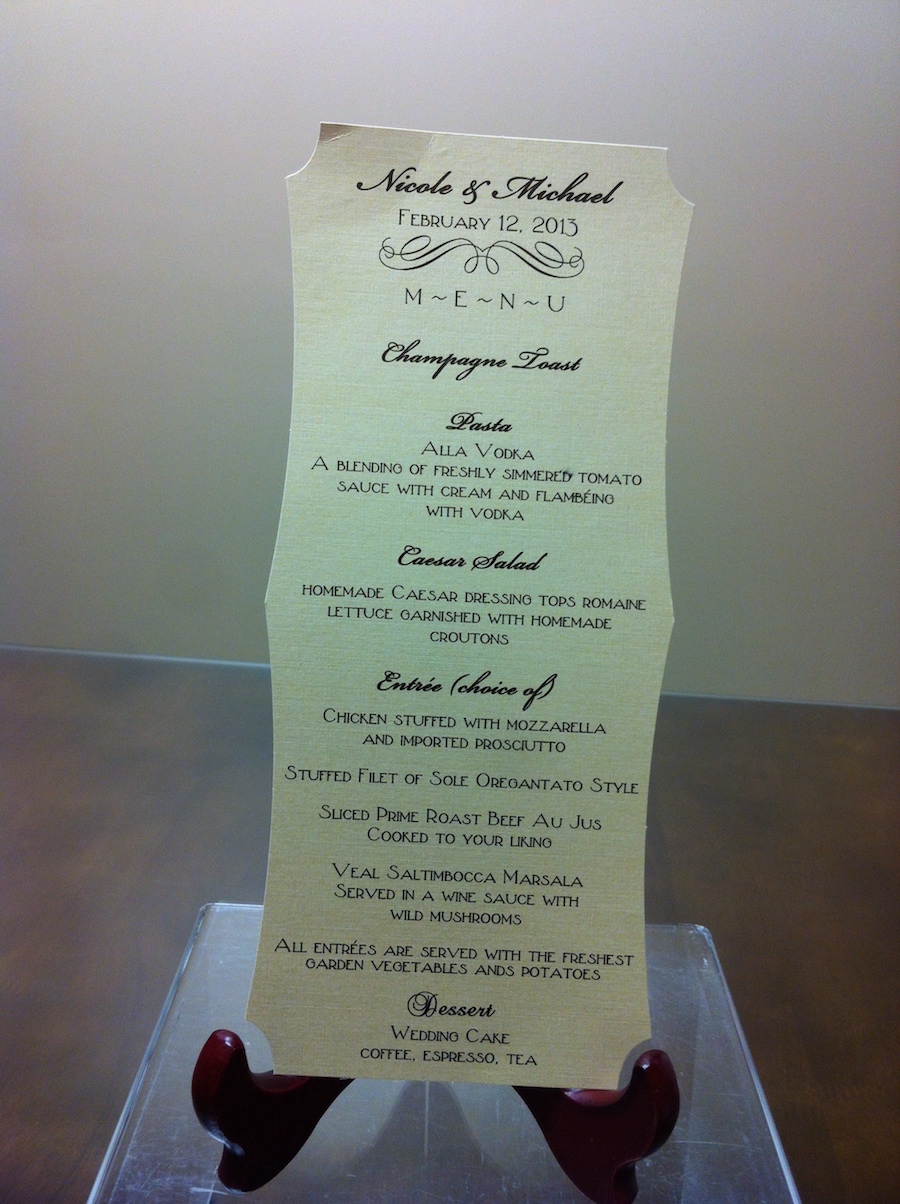 Nicole & Michael
February 12, 2013
M~E~N~U
Champagne Toast
Pasta
Alla Vodka
A blending of freshly simmered tomato
sauce with cream and flambéing
with vodka
Caesar Salad
homemade Caesar dressing tops romaine
lettuce garnished with homemade
croutons
Entrée (choice of)
Chicken stuffed with mozzarella
and imported prosciutto
Stuffed Filet of Sole Oregantato Style
Sliced Prime Roast Beef Au Jus
Cooked to your liking
Veal Saltimbocca Marsala
Served in a wine sauce with
wild mushrooms
All entrées are served with the freshest
garden vegetables ands potatoes
Dessert
Wedding Cake
coffee, espresso, tea